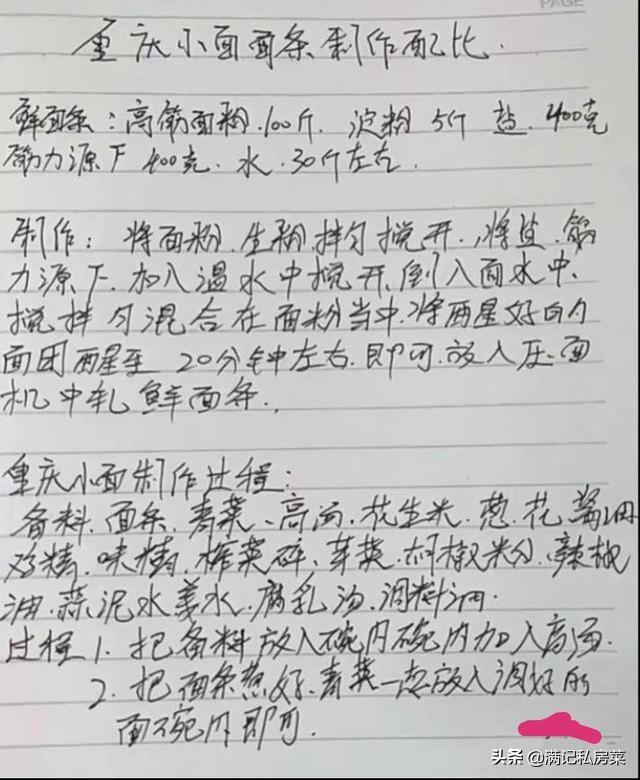 PAGE
重庆小面面条制作配比.
鲜面条：高筋面粉.100斤. 淀粉 5斤 盐. 400克
筋力源F 400克. 水. 30斤左右.
制作：将面粉.生粉.拌匀搅开.,将盐.筋
力源F.加入温水中搅开.倒入面水中.
搅拌匀混合在面粉当中.将醒好的
面团醒至 20分钟左右.即可.放入压面
机中轧鲜面条.
重庆小面制作过程：
备料.面条.青菜、高汤.花生米.葱.花酱油
鸡精.味精.榨菜碎.芽菜.胡椒粉、辣椒
油.蒜泥水姜水.腐乳汤.调料油.
过程1.把备料放入碗内碗内加入高汤.
2.把面条煮好.青菜一点放入调好的
面碗内即可.
头条 @满记私房菜